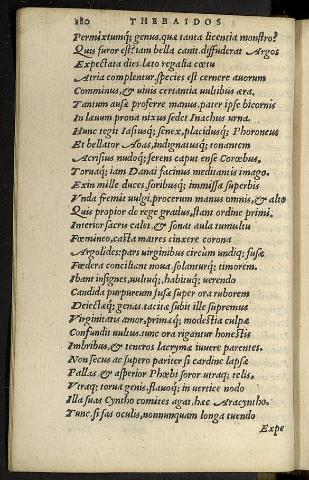 180 THEBAIDOS
Permixtumq; genus. quæ tanta licentia monstro?
Quis furor est? iam bella canit. diffuderat Argos
Expectata dies. læto regalia cœtu
Atria complentur, species est cernere auorum
Comminus, & uiuis certantia uultibus æra,
Tantum ausæ proferre manus, pater ipse bicornis
In læuum prona nixus sedet Inachus urna.
Hunc tegit Iasiusq; senex, placidusq; Phoroneus
Et bellator Abas, indignatusq; tonantem
Acrisius nudoq; ferens caput ense Corœbus,
Toruaq; iam Danai facinus meditantis imago.
Exin mille duces. foribusq; immissa superbis
Vnda fremit uulgi. procerum manus omnis, & alto
Quis propior de rege gradus, stant ordine primi.
Interior sacris calet, & sonat aula tumultu
Fœmineo, casta matres cinxere corona
Argolides: pars uirginibus circùm undiq; fusæ
Fœdera conciliant noua solanturq; timorem.
Ibant insignes, uultuq;, habituq; uerendo
Candida purpureum fusæ super ora ruborem
Deiectæq; genas. tacitæ subit ille supremus
Virginitatis amor, primæq; modestia culpæ
Confundit uultus. tunc ora rigantur honestis
Imbribus, & teneros lacryma iuuere parentes.
Non secus ac supero pariter si cardine lapsæ
Pallas, & asperior Phœbi soror utraq; telis,
Vtraq; torua genis, flauoq; in uertice nodo
Illa suas Cyntho comites agat, hæc Aracyntho.
Tunc, si fas oculis, nonnunquam longa tuendo
Expe